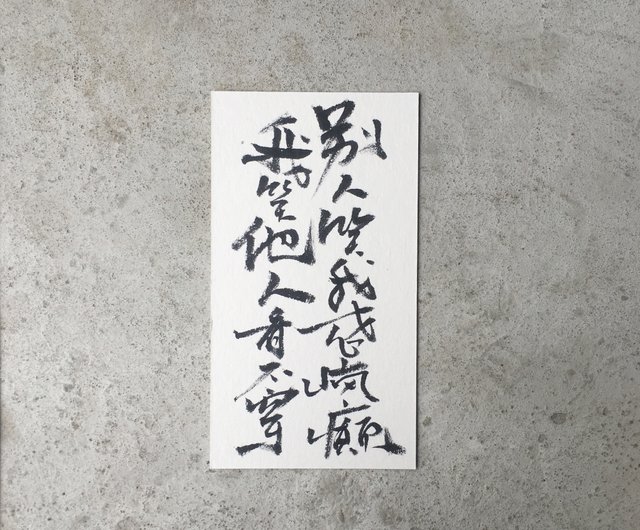 別人笑我忒瘋癲
我笑他人看不穿